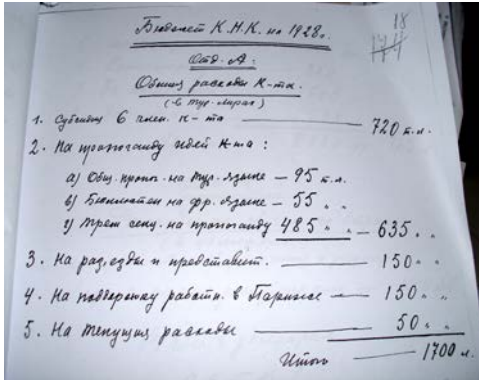 18
144
Бюджет К.Н.К. на 1928г.
Отд. А:
Общия расходы К-та.
(в тур. лирах)
1. Субсидия 6 член. к-та — 720 т.л.
2. На пропоганду идей К-та:
а) Общ. пропог. на тур. языке — 95 т.л.
в) Бюллетен на фр. языке — 55 " "
г) Трем секц. на пропоганду 485 " " — 635 " "
3. На раз,езды и представит. — 150 " "
4. На поддержку работн. в Париже — 150 " "
5. На текущия расходы — 50 " "
Итого — 1700 л.